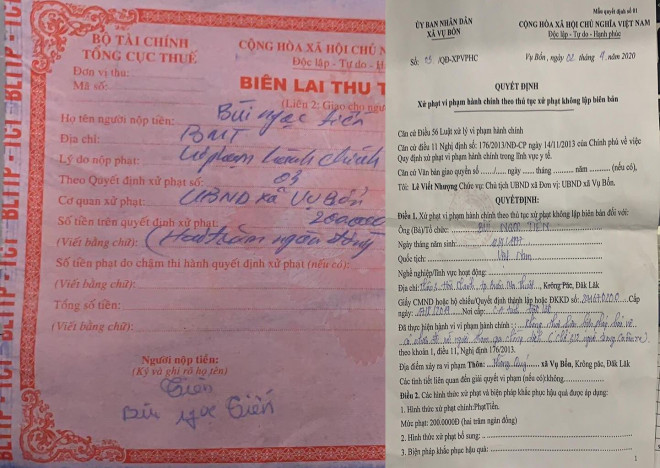 BỘ TÀI CHÍNH
TỔNG CỤC THUẾ
Đơn vị thu:
Mã số:
CỘNG HÒA XÃ HỘI CHỦ NGHĨA VIỆT N
Độc lập - Tự do - Hạnh
BIÊN LAI THU T
(Liên 2: Giao cho người
Họ tên người nộp tiền: Bùi Ngọc Tiến
Địa chỉ: BMT
Lý do nộp phạt: Vi phạm hành chính
Theo Quyết định xử phạt số: 03
Cơ quan xử phạt: UBND xã Vụ Bổn
Số tiền trên quyết định xử phạt: 200.000
(Viết bằng chữ): (Hai trăm ngàn đồng
Số tiền phạt do chậm thi hành quyết định xử phạt (nếu có):
(Viết bằng chữ):
Tổng số tiền:
(Viết bằng chữ):
Người nộp tiền:
(Ký và ghi rõ họ tên)
Tiến
Bùi Ngọc Tiến
BLTTP - TCT
Mẫu quyết định số 01
ỦY BAN NHÂN DÂN
XÃ VỤ BỔN
CỘNG HÒA XÃ HỘI CHỦ NGHĨA VIỆT NAM
Độc lập - Tự do - Hạnh phúc
Số: 03 /QĐ-XPVPHC
Vụ Bổn, ngày 02 tháng 4 năm 2020
QUYẾT ĐỊNH
Xử phạt vi phạm hành chính theo thủ tục xử phạt không lập biên bản
Căn cứ Điều 56 Luật xử lý vi phạm hành chính
Căn cứ điều 11 Nghị định số: 176/2013/NĐ-CP ngày 14/11/2013 của Chính phủ về việc
Quy định xử phạt vi phạm hành chính trong lĩnh vực y tế.
Căn cứ Văn bản giao quyền số ...../..... ngày ...... tháng ...... năm ...... (nếu có),
Tôi: Lê Viết Nhượng Chức vụ: Chủ tịch UBND xã Đơn vị: UBND xã Vụ Bổn.
QUYẾT ĐỊNH:
Điều 1. Xử phạt vi phạm hành chính theo thủ tục xử phạt không lập biên bản đối với:
Ông (Bà)/Tổ chức: BÙI NGỌC TIẾN
Ngày tháng năm sinh:
Quốc tịch: Việt Nam
Nghề nghiệp/lĩnh vực hoạt động:
Địa chỉ: Krông Pắc, Đăk Lăk
Giấy CMND hoặc hộ chiếu/Quyết định thành lập hoặc ĐKKD số: Cấp
ngày: Nơi cấp:
Đã thực hiện hành vi vi phạm hành chính: Không thực hiện
theo khoản 1, điều 11, Nghị định 176/2013.
Địa điểm xảy ra vi phạm Thôn: xã Vụ Bổn, Krông pắc, Đăk Lăk
Các tình tiết liên quan đến giải quyết vi phạm (nếu có):không
Điều 2. Các hình thức xử phạt và biện pháp khắc phục hậu quả được áp dụng:
1. Hình thức xử phạt chính:PhạtTiền.
Mức phạt: 200.000Đ (hai trăm ngàn đồng)
2. Hình thức xử phạt bổ sung:
3. Biện pháp khắc phục hậu quả:
1